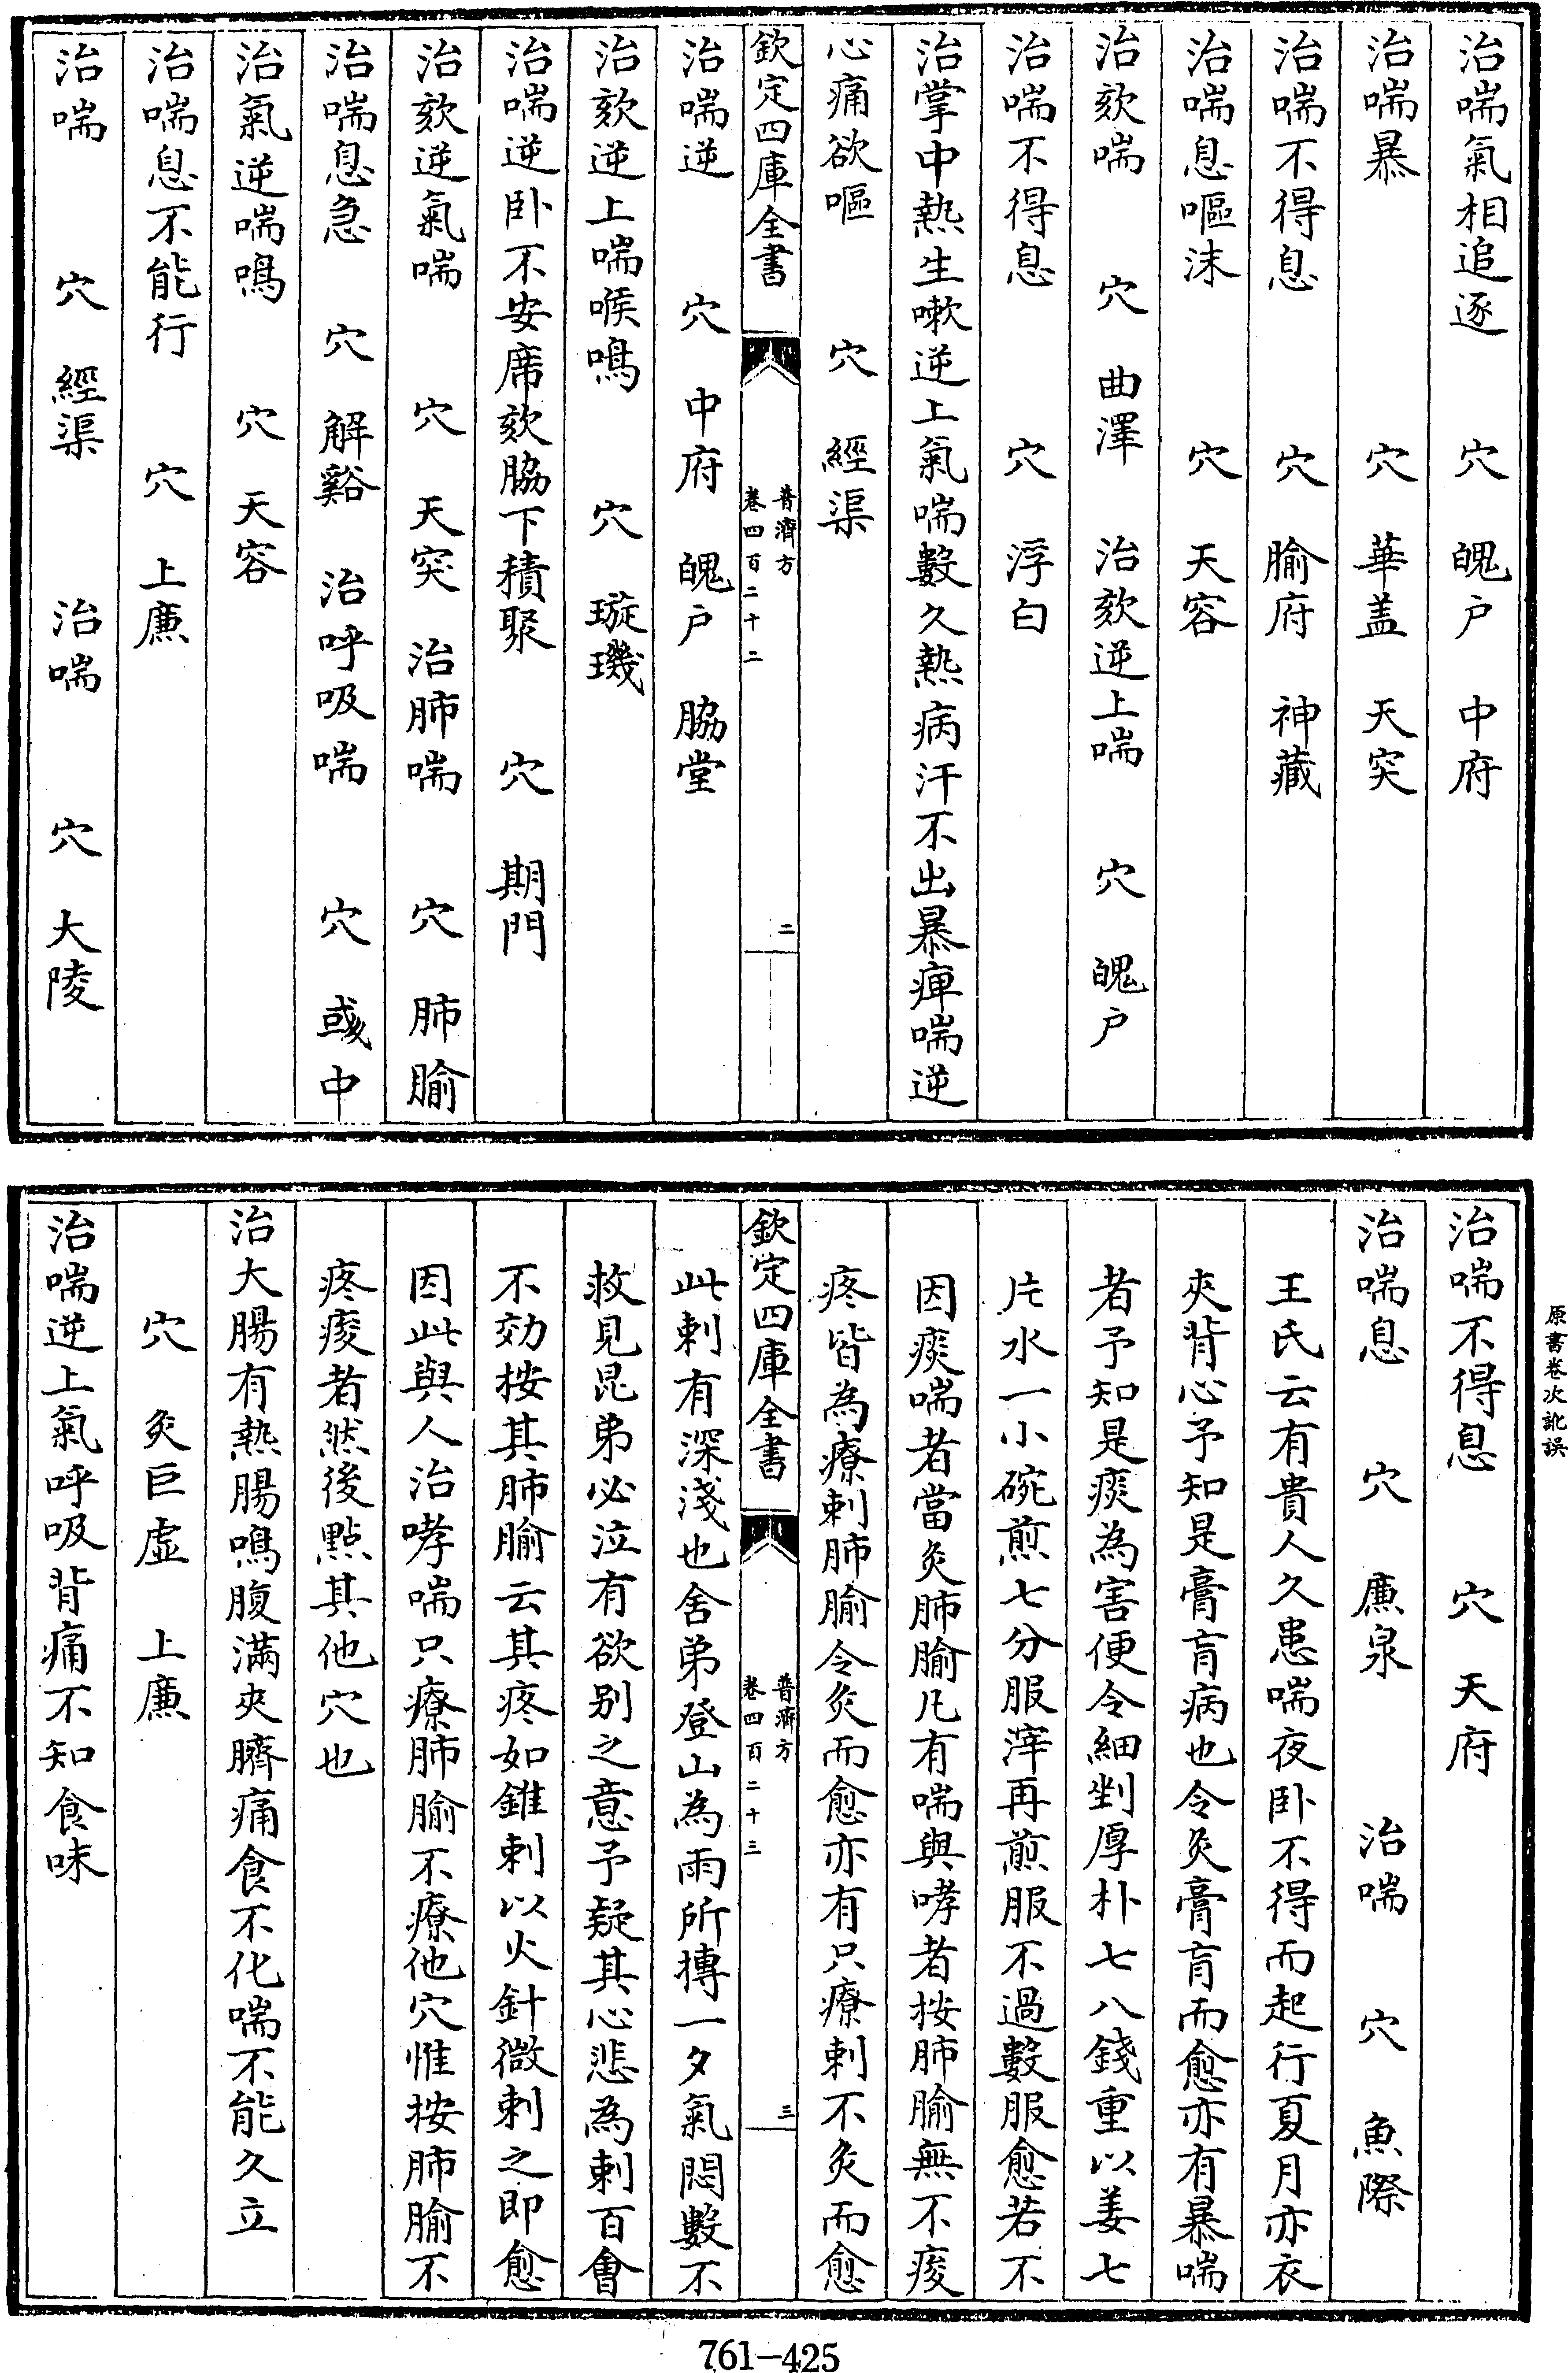 治喘氣相追逐　穴　魄户　中府
治喘暴　穴　華盖　天突
治喘不得息　穴　腧府　神藏
治喘息嘔沫　穴　天容
治欬喘　穴　曲澤　治欬逆上喘　穴　魄户
治喘不得息　穴　浮白
治掌中熱生嗽逆上氣喘數久熱病汗不出暴痺喘逆
心痛欲嘔　穴　經渠
欽定四庫全書
普濟方
卷四百二十二
二
治喘逆　穴　中府　魄户　脇堂
治欬逆上喘喉鳴　穴　璇璣
治喘逆卧不安席欬脇下積聚　穴　期門
治欬逆氣喘　穴　天突　治肺喘　穴　肺腧
治喘息急　穴　解谿　治呼吸喘　穴　彧中
治氣逆喘鳴　穴　天容
治喘息不能行　穴　上廉
治喘　穴　經渠　治喘　穴　大陵
原書卷次訛誤
治喘不得息　穴　天府
治喘息　穴　廉泉　治喘　穴　魚際
王氏云有貴人久患喘夜卧不得而起行夏月亦衣
夾背心予知是膏肓病也令灸膏肓而愈亦有暴喘
者予知是痰為害便令細剉厚朴七八錢重以姜七
片水一小碗煎七分服滓再煎服不過數服愈若不
因痰喘者當灸肺腧凡有喘與哮者按肺腧無不痠
疼皆為療刺肺腧令灸而愈亦有只療刺不灸而愈
欽定四庫全書
普濟方
卷四百二十三
三
此刺有深淺也舍弟登山為雨所摶一夕氣悶數不
救見昆弟必泣有欲别之意予疑其心悲為刺百會
不効按其肺腧云其疼如錐刺以火針微刺之即愈
因此與人治哮喘只療肺腧不療他穴惟按肺腧不
疼痠者然後點其他穴也
治大腸有熱腸鳴腹滿夾臍痛食不化喘不能久立
穴　灸巨虚　上廉
治喘逆上氣呼吸背痛不知食味
761-425